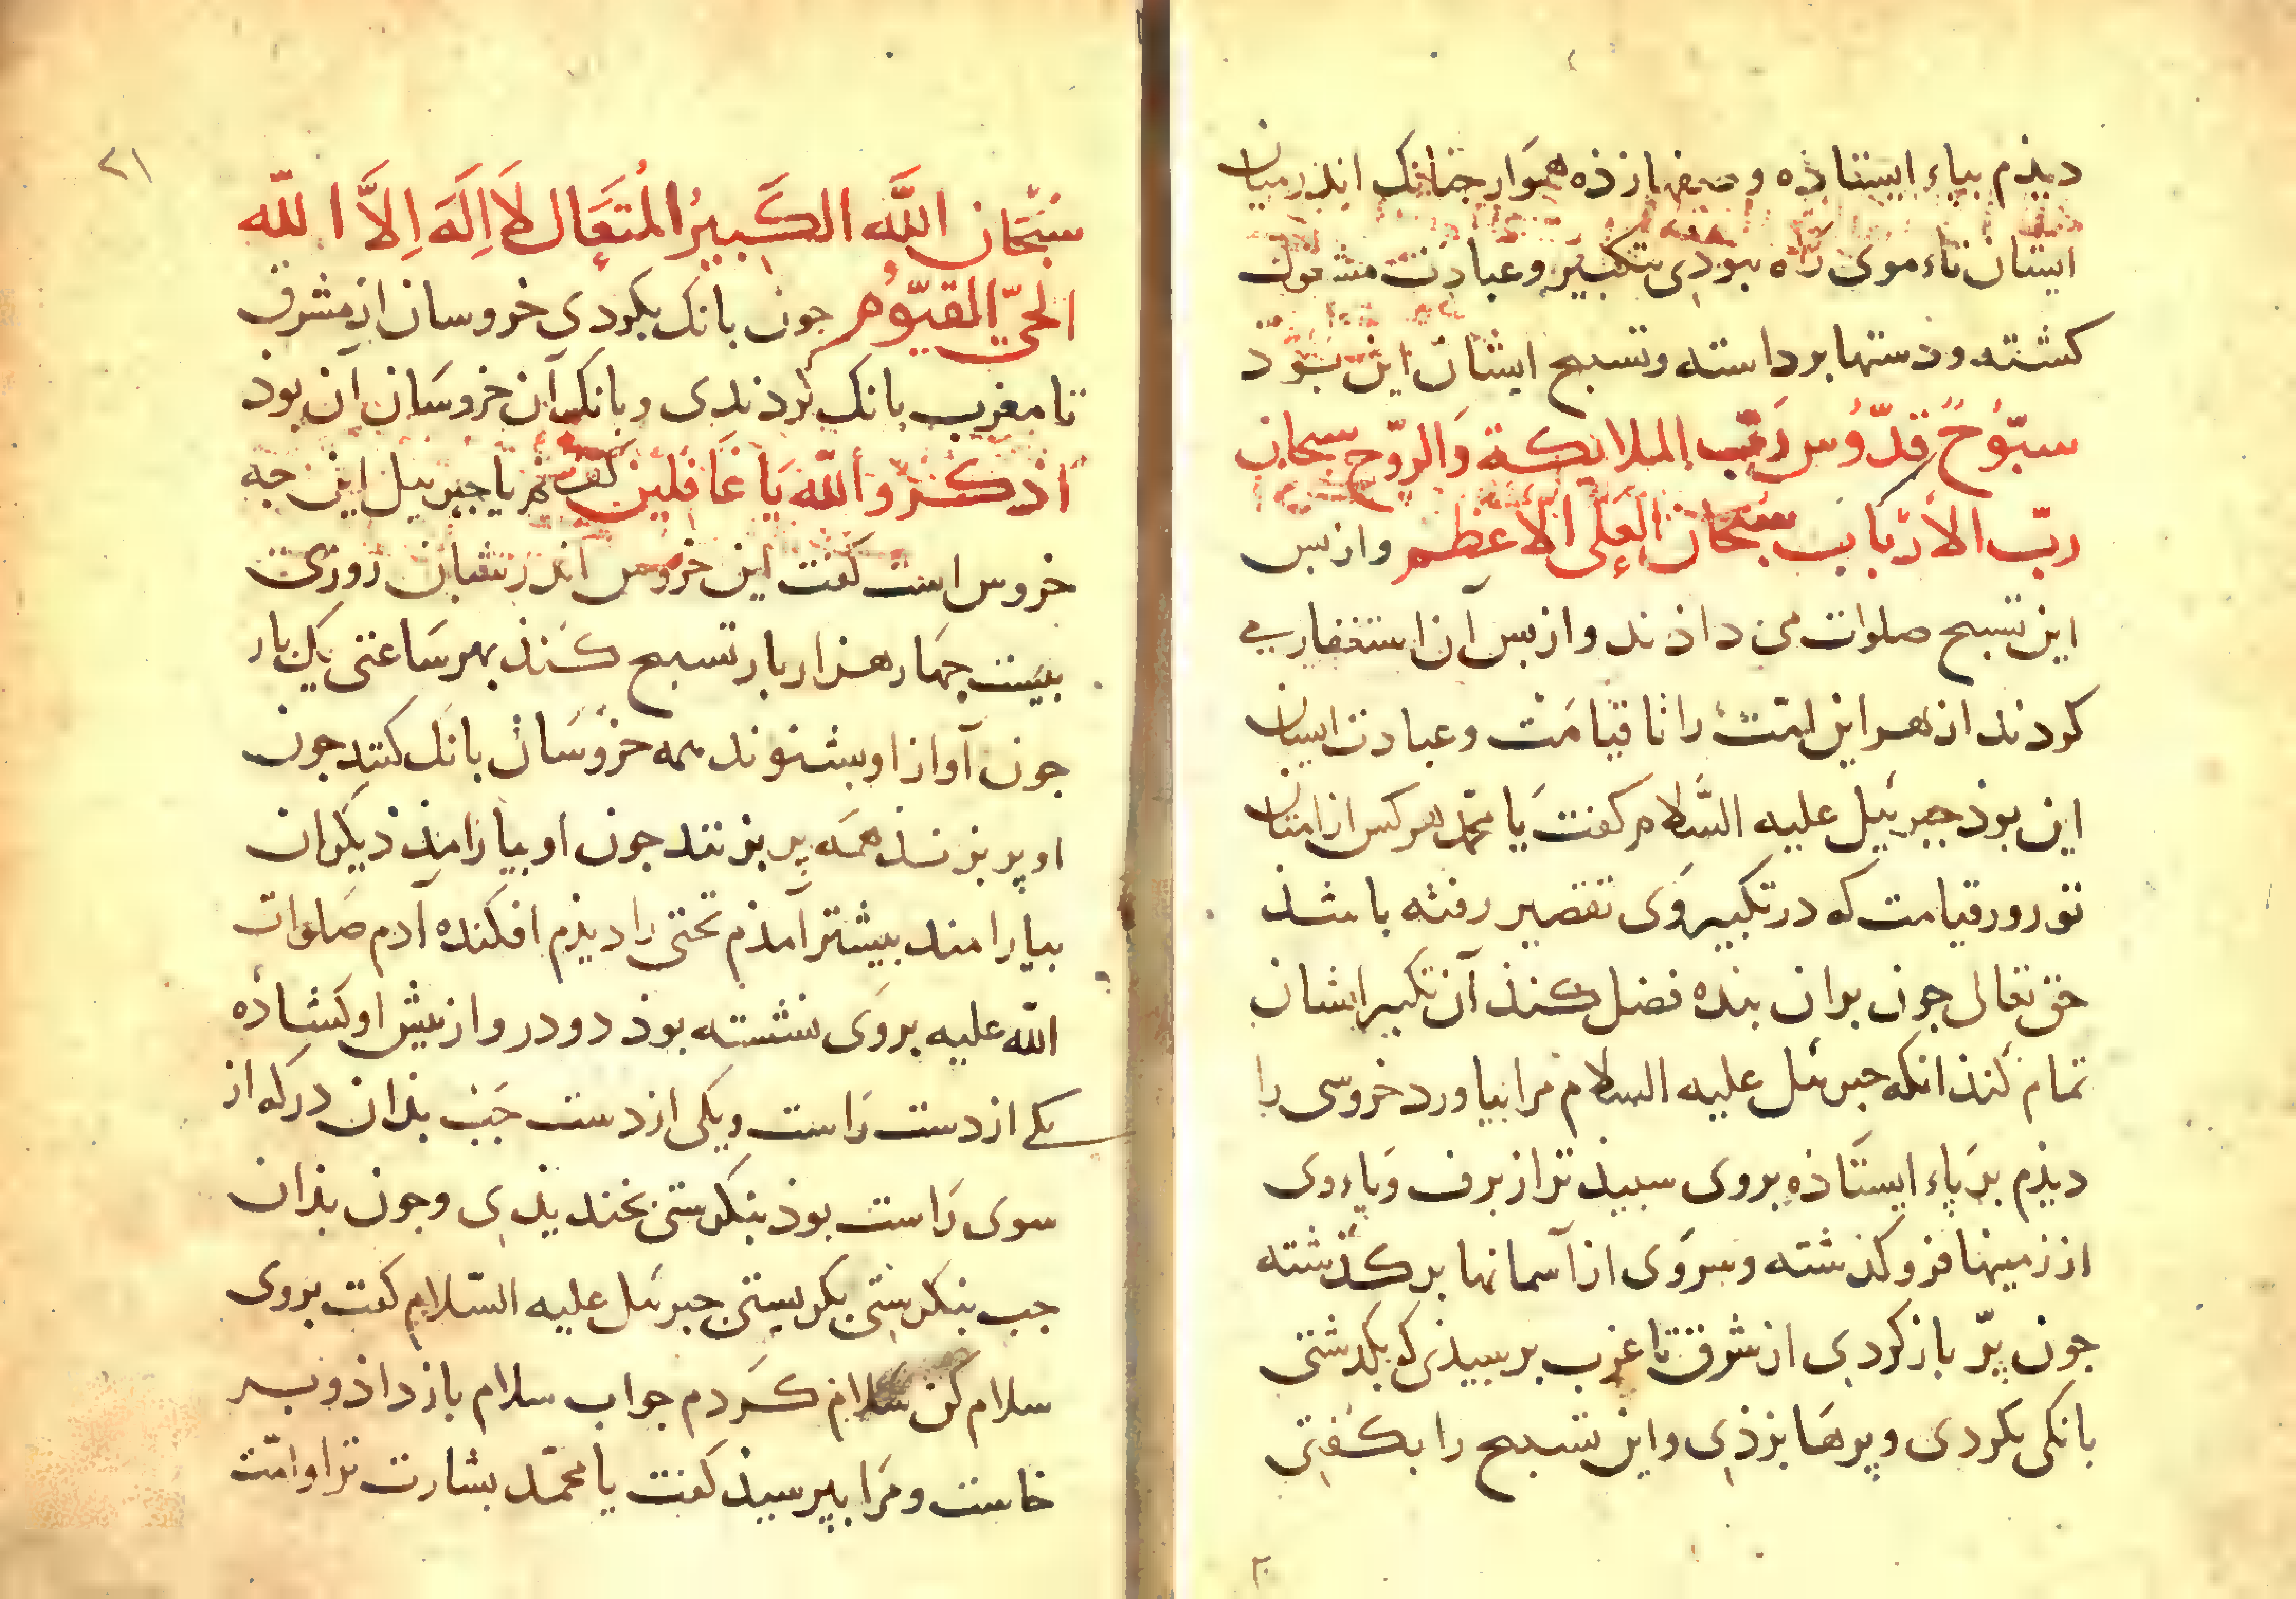 دیذم بپاء ایستاذه و صفها زذه هموار چنانک اندر میان
ایشان تاء موی راه نبوذی بتکبیر و عبادت مشغول
کشته و دستها برداسته و تسبیح ایشان این بوذ
سبّوح قدّوس ربّ الملائکة والروّح سبحان
ربّ الأرباب سبحان العلی الأعظم و از بس
این تسبیح صلوات می داذند و از بس آن استغفار می
کردند از بهر این امّت را تا قیامت و عبادت ایشان
این بوذ جبرئیل علیه السّلام کفت یا محمّد هر کس از امتان
تو روز قیامت که در تکبیر وی تقصیر رفته باشذ
حق تعالی جون بران بنده فضل کنذ آن تکبیر ایشان
تمام کنذ انکه جبرئل علیه السلام مرا بیاورد خروسی را
دیذم بر پاء ایستاذه بروی سبیذ تر از برف و پاء وی
از زمینها فرو کذشته و سر وی از آسمانها بر کذشته
جون پرّ باز کردی از شرق تا غرب برسیذی که بکذشتی
بانکی بکردی و پرها بزذی و این تسبیح را بکفتی
۲۱
سبحان اللّه الکبیر المتعال لا اله الاّ اللّه
الحیّ القیّوم جون بانک بکردی خروسان از مشرق
تا مغرب بانک کردندی و بانک آن خروسان آن بوذ
اذکروالله یا غافلین کفتم یا جبریل این جه
خروس است کفت این خروس اندر شبان روزی
بیست جهار هزار بار تسبیح کنذ بهر ساعتی یک بار
جون آواز او بشنوند همه خروسان بانک کنند جون
او پر بزنذ همه پر بزنند جون او بیارامذ دیکران
بیارامند بیشتر آمذم تختی را دیذم افکنده آدم صلوات
اللّه علیه بروی نشسته بوذ دو در و از بیش او کشاذه
یکی از دست راست و یکی از دست جب بذان در که از
سوی راست بوذ بنکرستی بخندیذی و جون بذان
جب بنکرستی بکریستی جبرئل علیه السّلام کفت بروی
سلام کن سلام کردم جواب سلام باز داذ و بر
خاست و مرا بپرسیذ کفت یا محمّد بشارت ترا و امّت